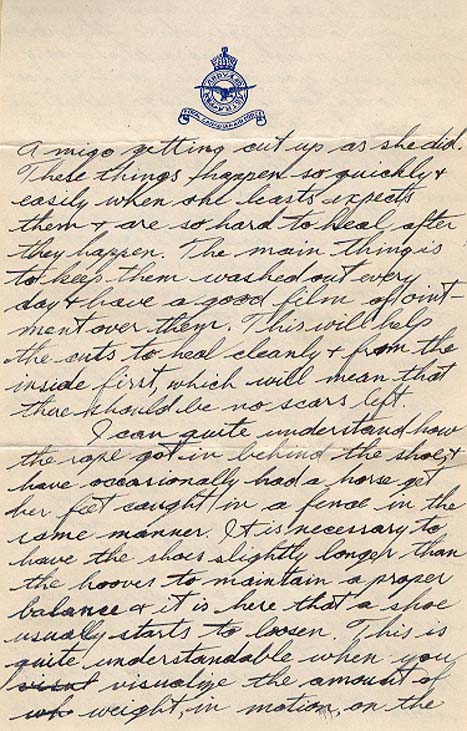 PER ARDUA AD ASTRA
ROYAL CANADIAN AIR FORCE
Amigo getting cut up as she did.
These things happen so quickly &
easily when one leasts expects
them & are so hard to heal after
they happen. The main thing is
to keep them washed out every
day & have a good film of oint-
ment over them. This will help
the cuts to heal cleanly & from the
inside first, which will mean that
there should be no scars left.
I can quite understand how
the rope got in behind the shoe, &
have occasionally had a horse get
her feet caught in a fence in the
same manner. It is necessary to
have the shoes slightly longer than
the hooves to maintain a proper
balance & it is here that a shoe
usually starts to loosen. This is
quite understandable when you
visualize the amount of
weight, in motion, on the